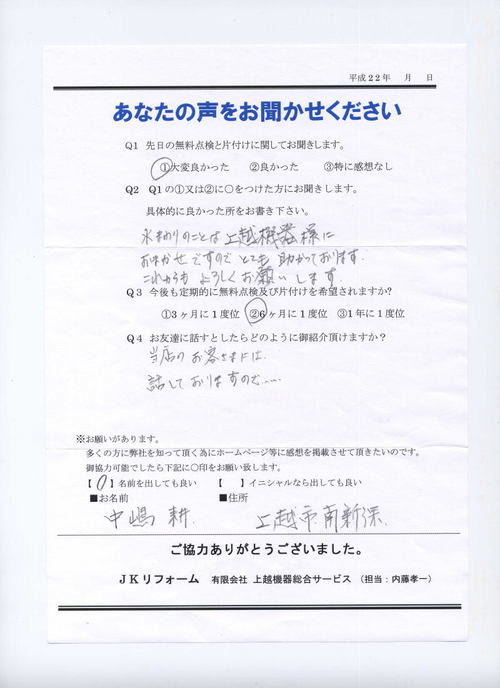 平成22年　月　日
あなたの声をお聞かせください
Q1 先日の無料点検と片付けに関してお聞きします。
①大変良かった　②良かった　③特に感想なし
Q2 Q1の①又は②に○をつけた方にお聞きします。
具体的に良かった所をお書き下さい。
水まわりのことは上越機器様に
おまかせですのでとても助かっております.
これからもよろしくお願いします.
Q3 今後も定期的に無料点検及び片付けを希望されますか?
①3ヶ月に1度位　②6ヶ月に1度位　③1年に1度位
Q4 お友達に話すとしたらどのように御紹介頂けますか?
当店のお客さまには.
話しておりますので.....
※お願いがあります。
多くの方に弊社を知って頂く為にホームページ等に感想を掲載させて頂きたいのです。
御協力可能でしたら下記に○印をお願い致します。
【○】名前を出しても良い　【　】イニシャルなら出しても良い
■お名前　■住所
中嶋 耕　上越市南新保
ご協力ありがとうございました。
JKリフォーム　有限会社 上越機器総合サービス　(担当：内藤孝一)